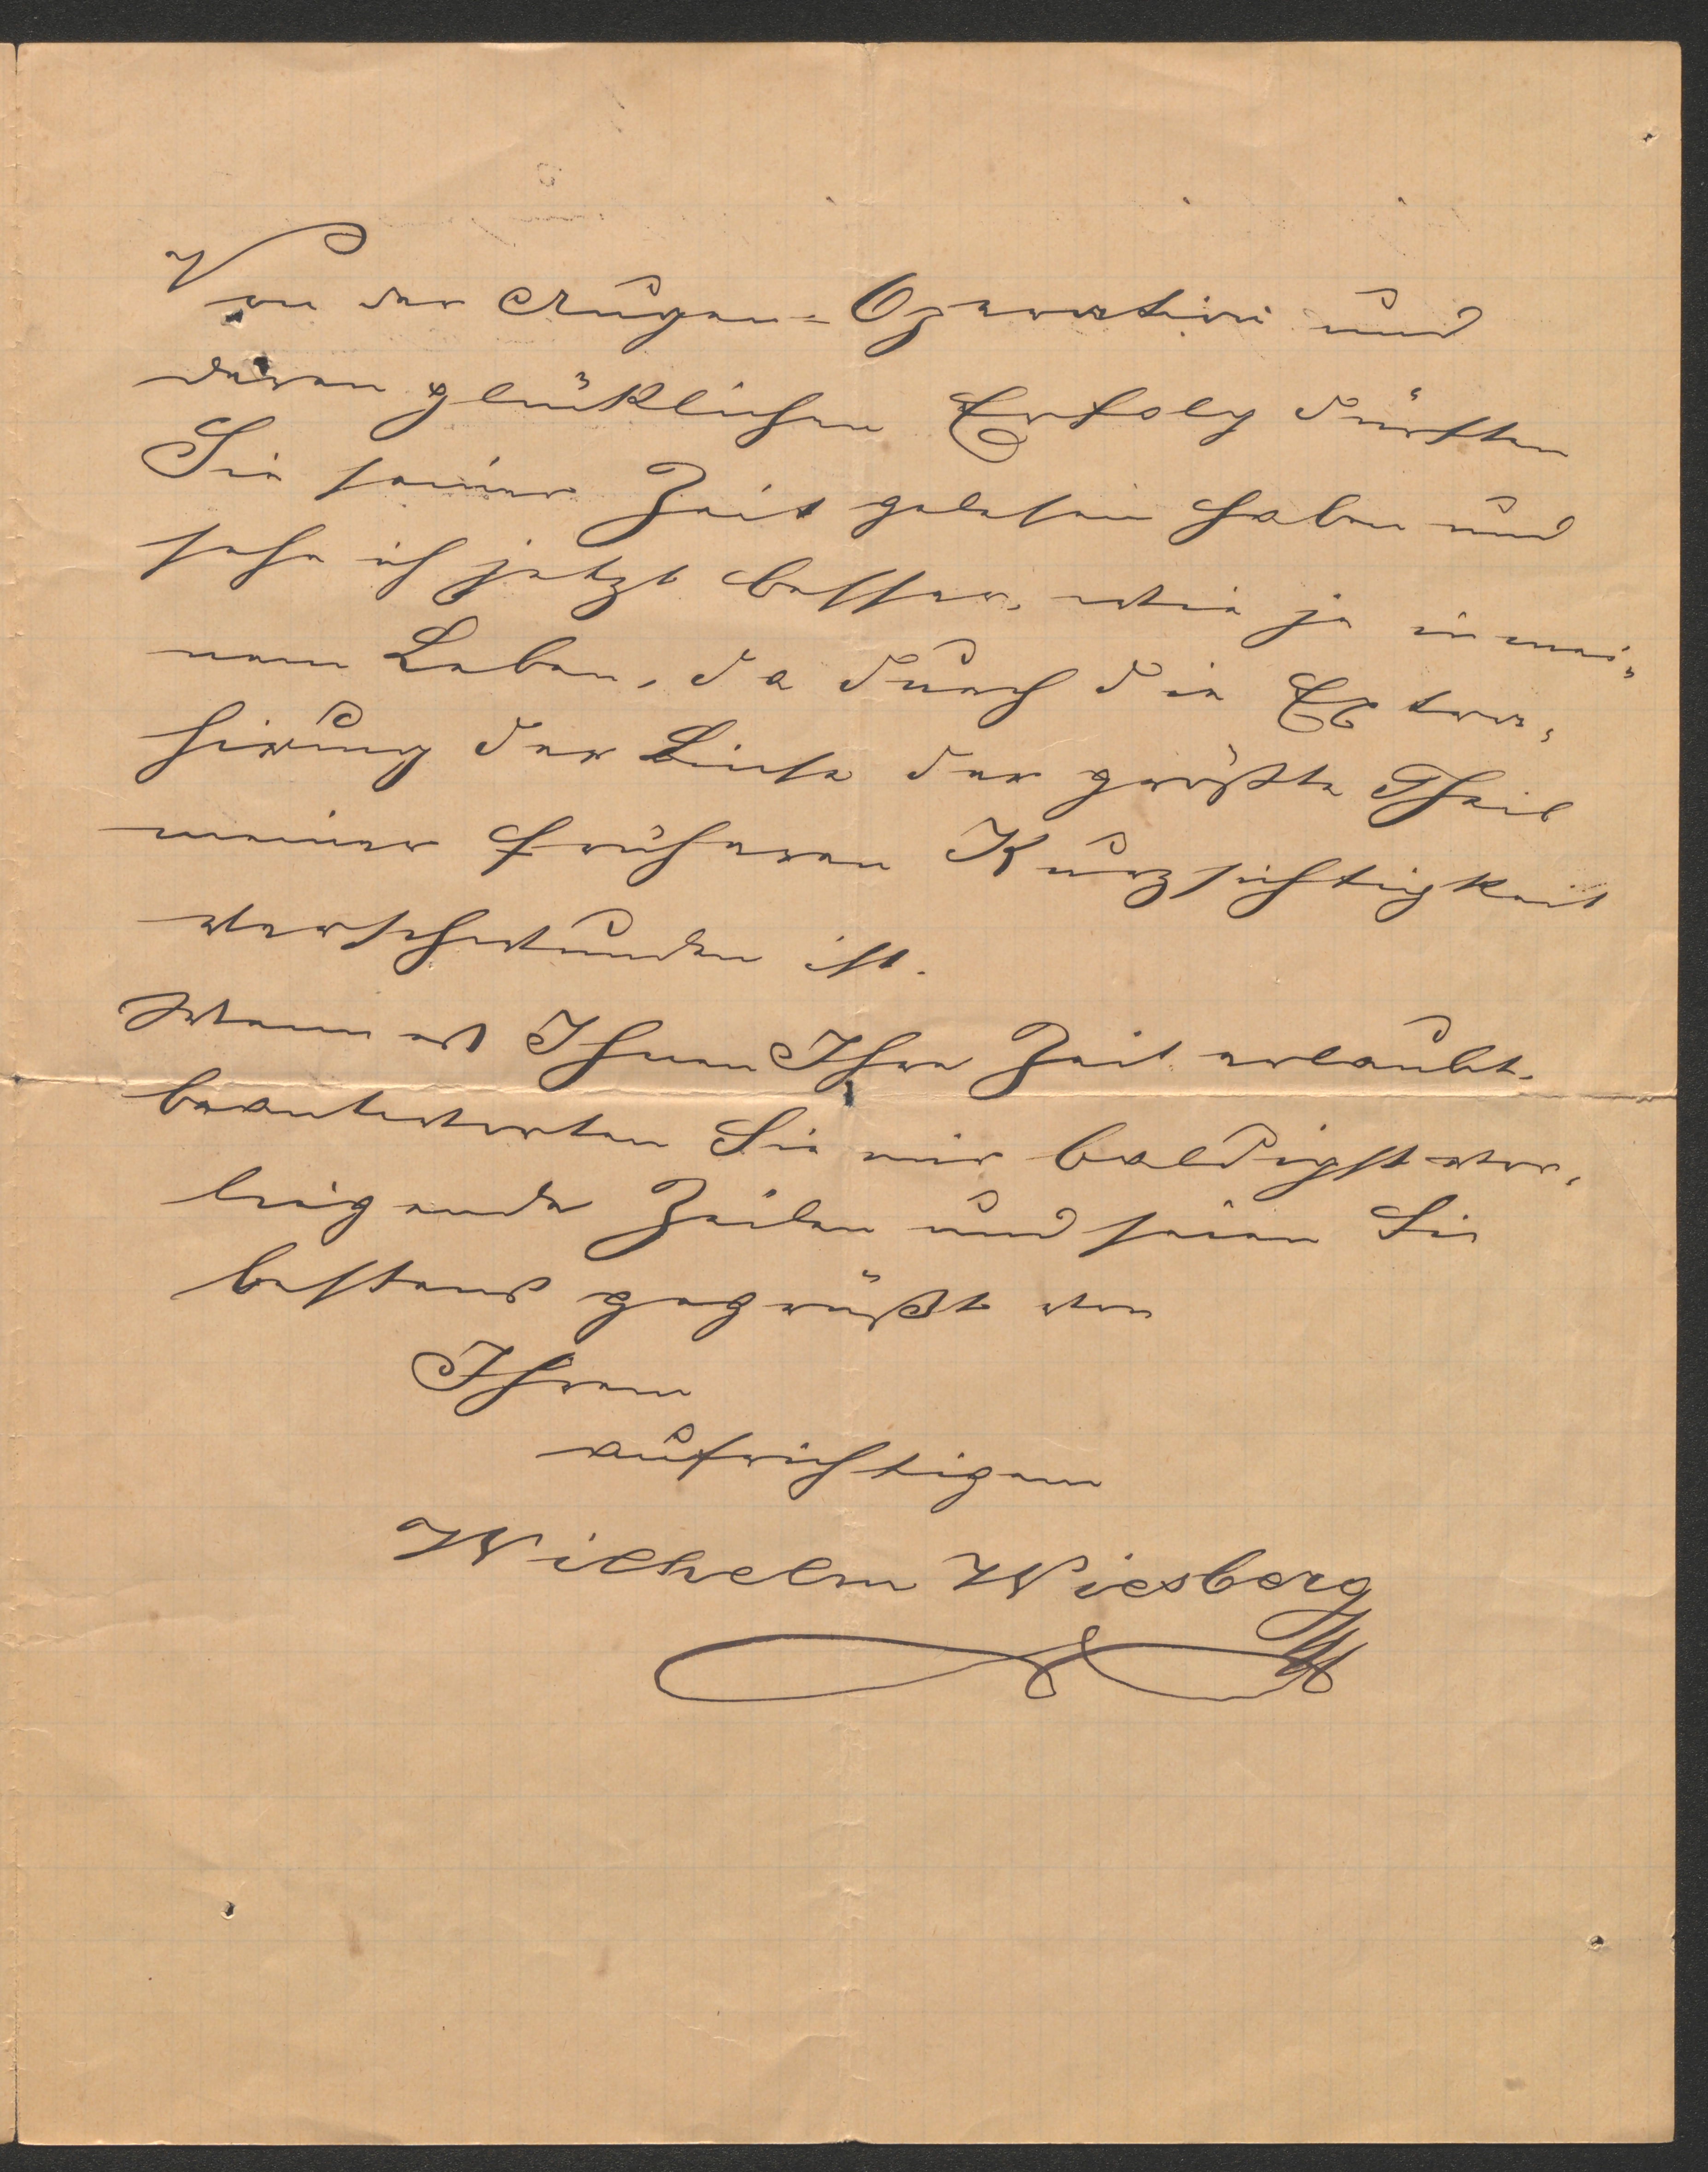 Von der Augen=Operation und
deren glücklichen Erfolg dürften
Sie seiner Zeit gelesen haben und
sehe ich jetzt besser, wie je in mei=
nem Leben, da durch die Extra=
hirung der Linse der größte Theil
meiner früheren Kurzsichtigkeit
verschwunden ist.
Wenn es Ihnen Ihre Zeit erlaubt,
beantworten Sie mir baldigst vor=
liegende Zeilen und seien Sie
bestens gegrüßt von
Ihrem
aufrichtigem
Wilhelm Wiesberg